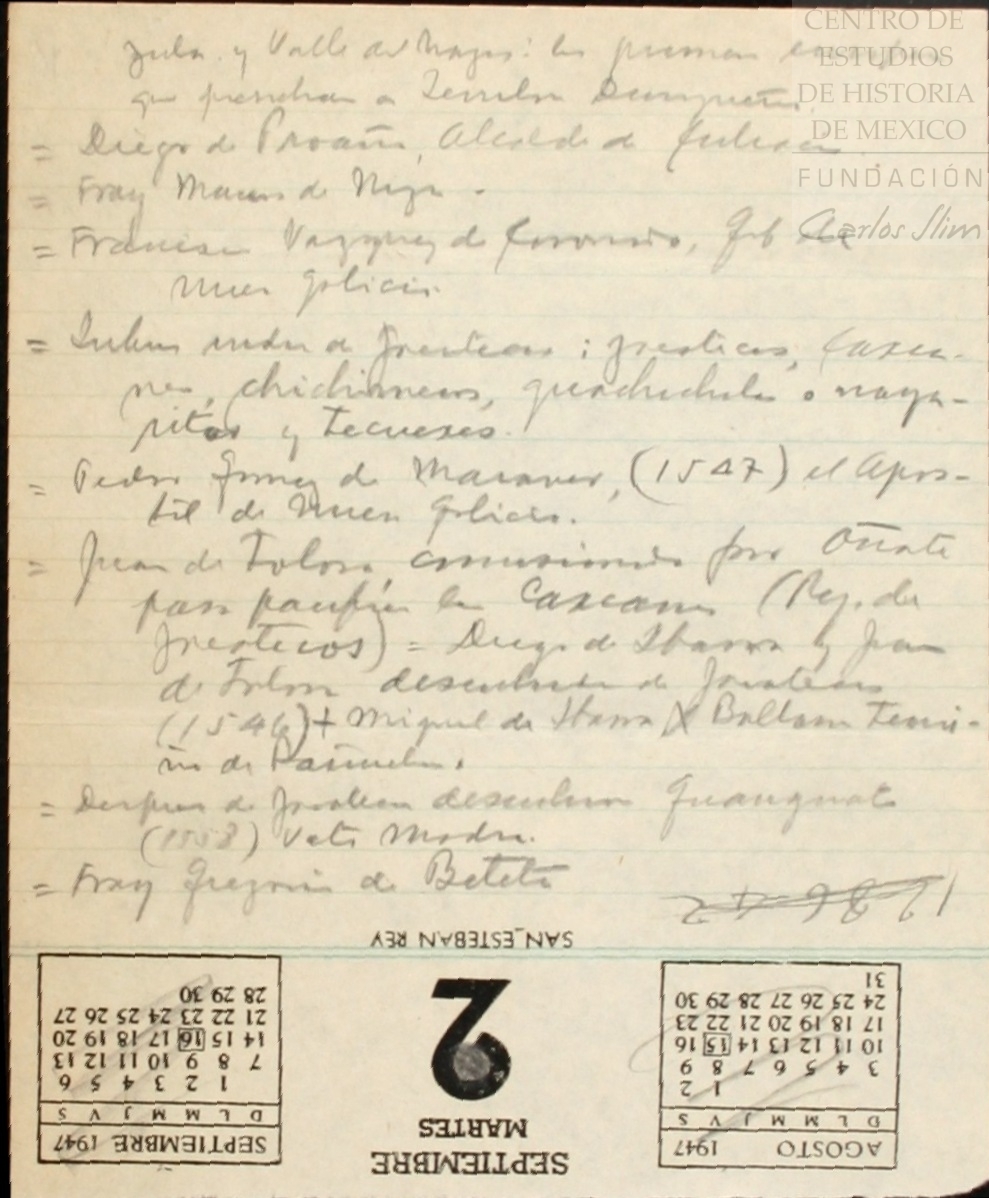 y Valle de
que a
= Diego de Proaño, Alcalde de Culiacan.
= Fray Marcos de Niza.
= Francisco Vazquez de Coronado, Gob de
Nueva Galicia.
= Indios de Zacatecas: zacatecos, Caxca-
nes, chichimecas, guachichiles o naya-
ritas y Tecuexes.
= Pedro Gomez de Maraver, (1547) el Apos-
tol de Nueva Galicia.
= Juan de Tolosa, comisionado por Oñate
para pacificar los Caxcanes (Reg. de
Zacatecos) = Diego de Ibarra y Juan
de Tolosa descubren de Zacatecas
(1546) + Miguel de Ibarra X Baltasar Temi-
ño de Bañuelos.
= Despues de Zacatecas descubren Guanajuato
(1558) Veta Madre.
= Fray Gregorio de Beteta
SAN ESTEBAN REY
SEPTIEMBRE
MARTES
2
AGOSTO 1947
D L M M J V S
1 2
3 4 5 6 7 8 9
10 11 12 13 14 15 16
17 18 19 20 21 22 23
24 25 26 27 28 29 30
31
SEPTIEMBRE 1947
D L M M J V S
1 2 3 4 5 6
7 8 9 10 11 12 13
14 15 16 17 18 19 20
21 22 23 24 25 26 27
28 29 30
CENTRO DE
ESTUDIOS
DE HISTORIA
DE MEXICO
FUNDACIÓN
Carlos Slim